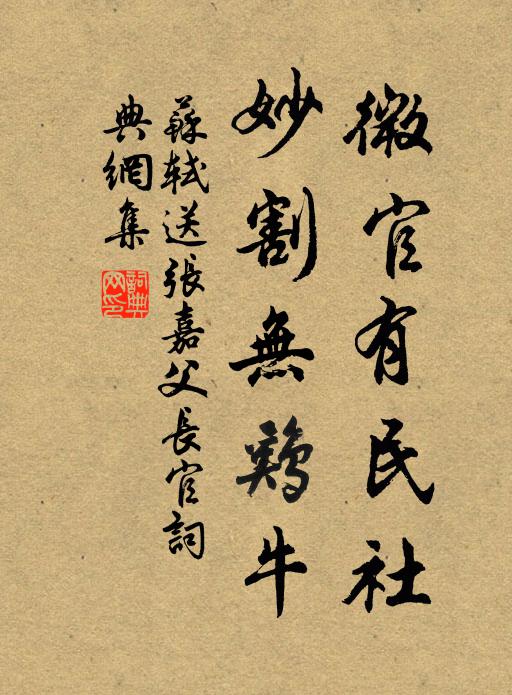 微官有民社
妙割無鷄牛
蘇軾送張嘉父長官詞
典網集
詞典网印